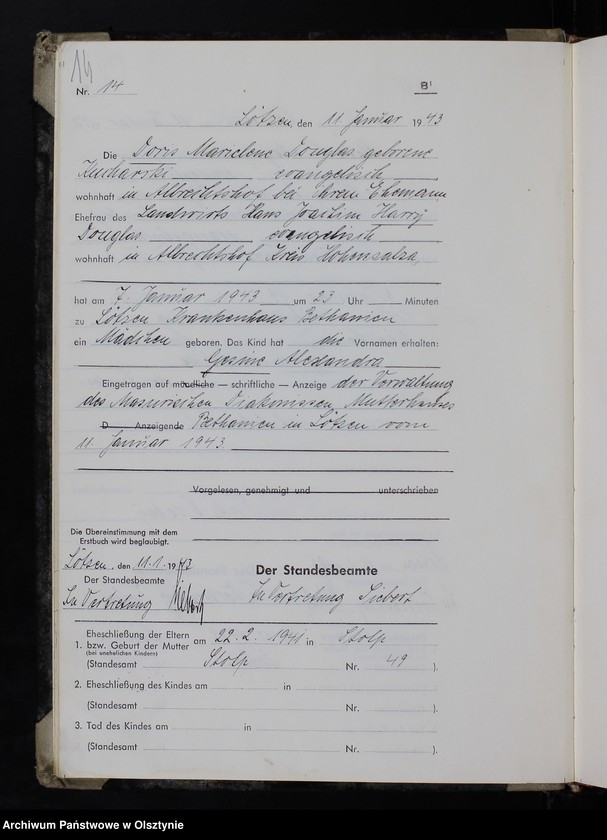 14
Nr. 14 B¹
Lötzen, den 11. Januar 1943
Die Doris Marielene Douglas geborene
Kucharski evangelisch
wohnhaft in Albrechtshof bei ihrem Ehemann
Ehefrau des Landwirts Hans Joachim Harry
Douglas evangelisch
wohnhaft in Albrechtshof Kreis Hohensalza,
hat am 7. Januar 1943 um 23 Uhr Minuten
zu Lötzen Krankenhaus Bethanien
ein Mädchen geboren. Das Kind hat die Vornamen erhalten:
Gesine Alexandra
Eingetragen auf mündliche — schriftliche — Anzeige der Verwaltung
des Masurischen Diakonissen Mutterhauses
D Anzeigende Bethanien in Lötzen vom
11. Januar 1943
Vorgelesen, genehmigt und unterschrieben
Die Übereinstimmung mit dem
Erstbuch wird beglaubigt.
Lötzen, den 11.1.1943
Der Standesbeamte
Der Standesbeamte
In Vertretung Siebert
In Vertretung Siebert
Eheschließung der Eltern
1. bzw. Geburt der Mutter am 22.2.1941 in Stolp
(bei unehelichen Kindern)
(Standesamt Stolp Nr. 49 ).
2. Eheschließung des Kindes am in
(Standesamt Nr. ).
3. Tod des Kindes am in
(Standesamt Nr. ).
Archiwum Państwowe w Olsztynie